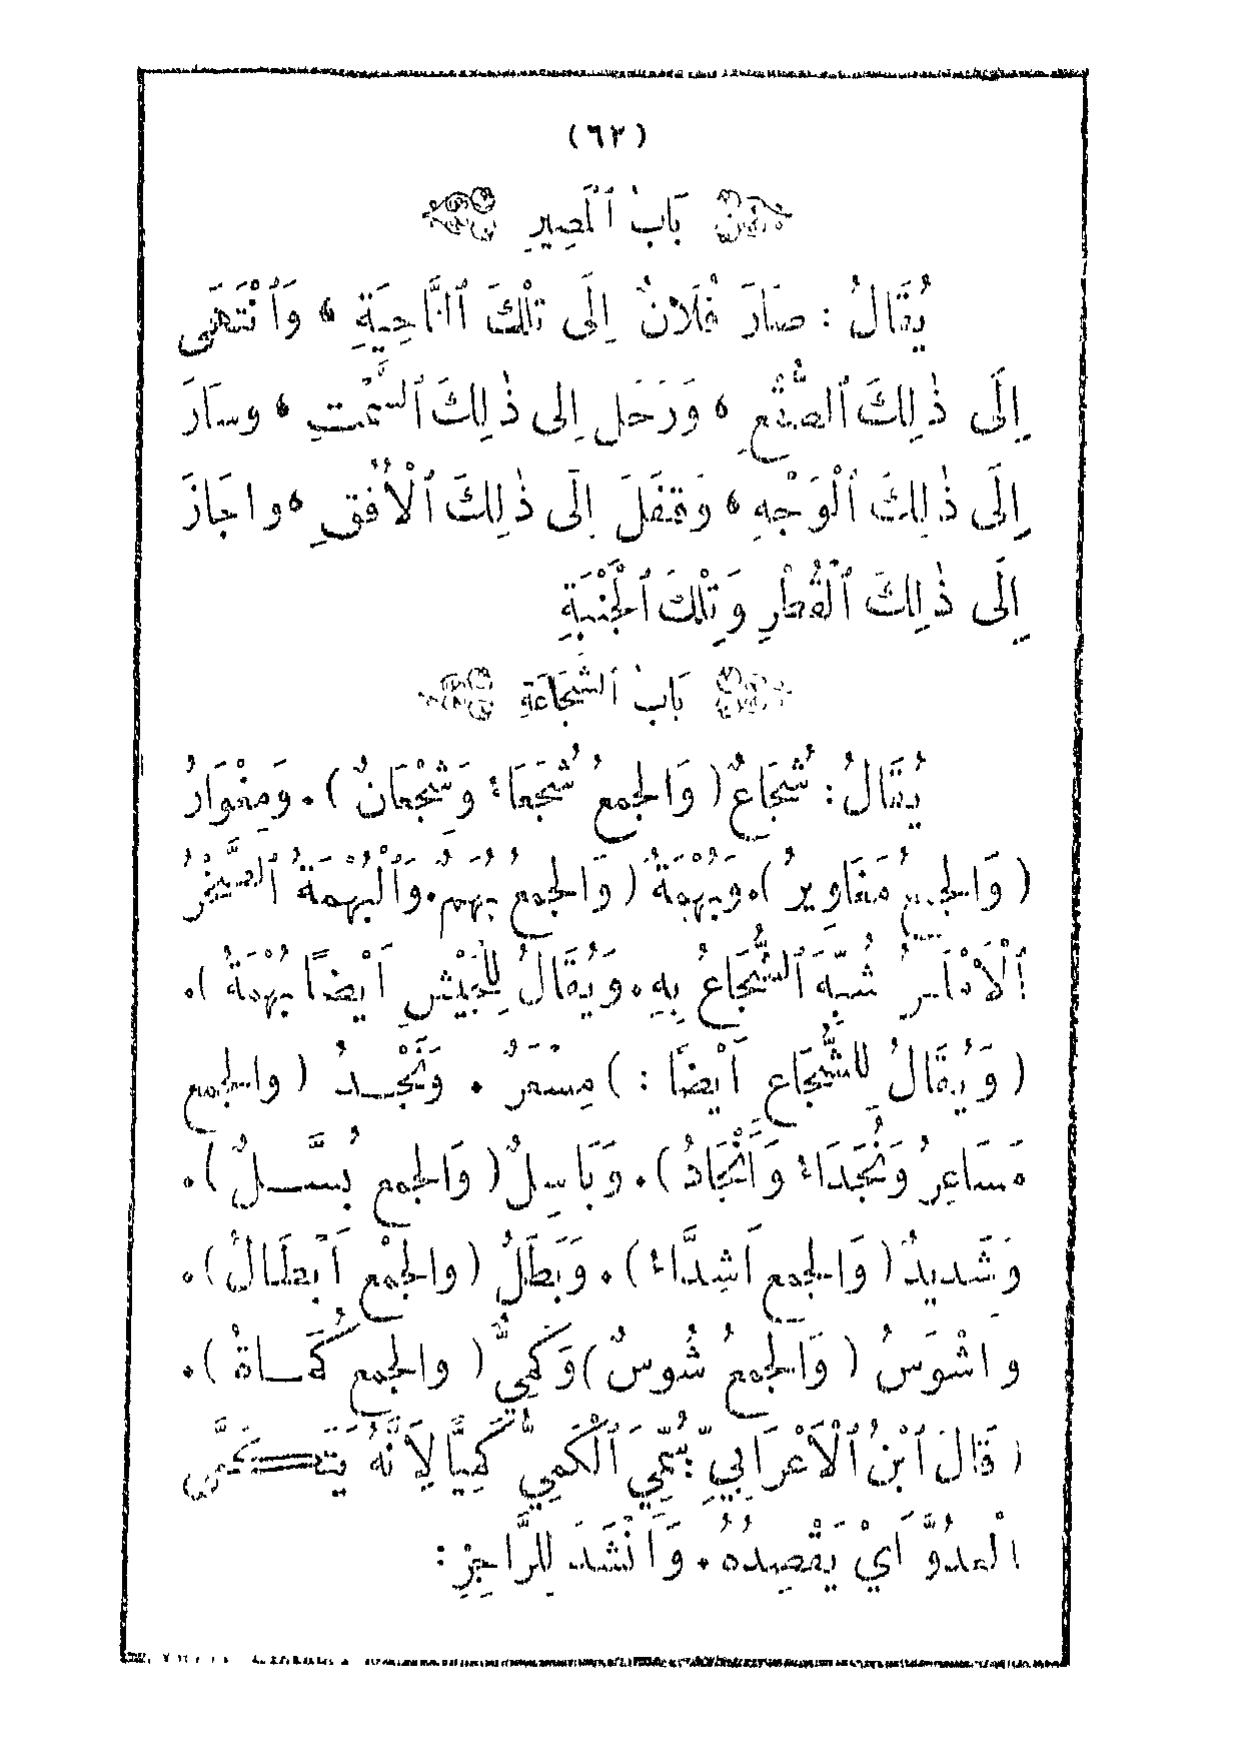 (٦٣)
بَابُ ٱلْمَصِيرِ
يُقَالُ : صَارَ فُلَانٌ إِلَى تِلْكَ ٱلنَّاحِيَةِ ، وَٱنْتَهَى
إِلَى ذٰلِكَ ٱلصُّقْعِ ، وَرَحَلَ إِلى ذٰلِكَ ٱلسَّمْتِ ، وسَارَ
إِلَى ذٰلِكَ ٱلْوَجْهِ ، وَقَفَلَ إِلَى ذٰلِكَ ٱلْأُفُقِ ، واجَازَ
إِلَى ذٰلِكَ ٱلْقُطْرِ وَتِلْكَ ٱلْجَنْبَةِ
بَابُ ٱلشَّجَاعَةِ
يُقَالُ : شُجَاعٌ ( وَالجمعُ شُجَعَاءُ وَشُجْعَانٌ ) . وَمِغْوَارٌ
( وَالجمعُ مَغَاوِيرُ ) . وَبُهْمَةٌ ( وَالجمعُ بُهَمٌ . وَٱلْبُهْمَةُ ٱلصَّخْرُ
ٱلْأَمْلَسُ شُبِّهَ ٱلشُّجَاعُ بِهِ . وَيُقَالُ لِلْجَيْشِ أَيْضًا بُهْمَةٌ ) .
( وَيُقَالُ لِلشُّجَاعِ أَيْضًا : ) مِسْعَرٌ . وَنَجْدٌ ( والجمع
مَسَاعِرُ وَنُجَدَاءُ وَأَنْجَادٌ ) . وَبَاسِلٌ ( وَالجمع بُسَّلٌ ) .
وَشَدِيدٌ ( وَالجمع أَشِدَّاءُ ) . وَبَطَلٌ ( والجَمْع أَبْطَالٌ ) .
واشْوَسُ ( وَالجمعُ شُوسٌ ) وَكَمِيٌّ ( والجمع كُمَاةٌ ) .
( قَالَ ٱبْنُ ٱلْأَعْرَابِيِّ : سُمِّيَ ٱلْكَمِيُّ كَمِيًّا لِأَنَّهُ يَتَكَمَّى
الْعَدُوَّ أَيْ يَقْصِدُهُ . وَأَنْشَدَ لِلرَّاجِزِ :